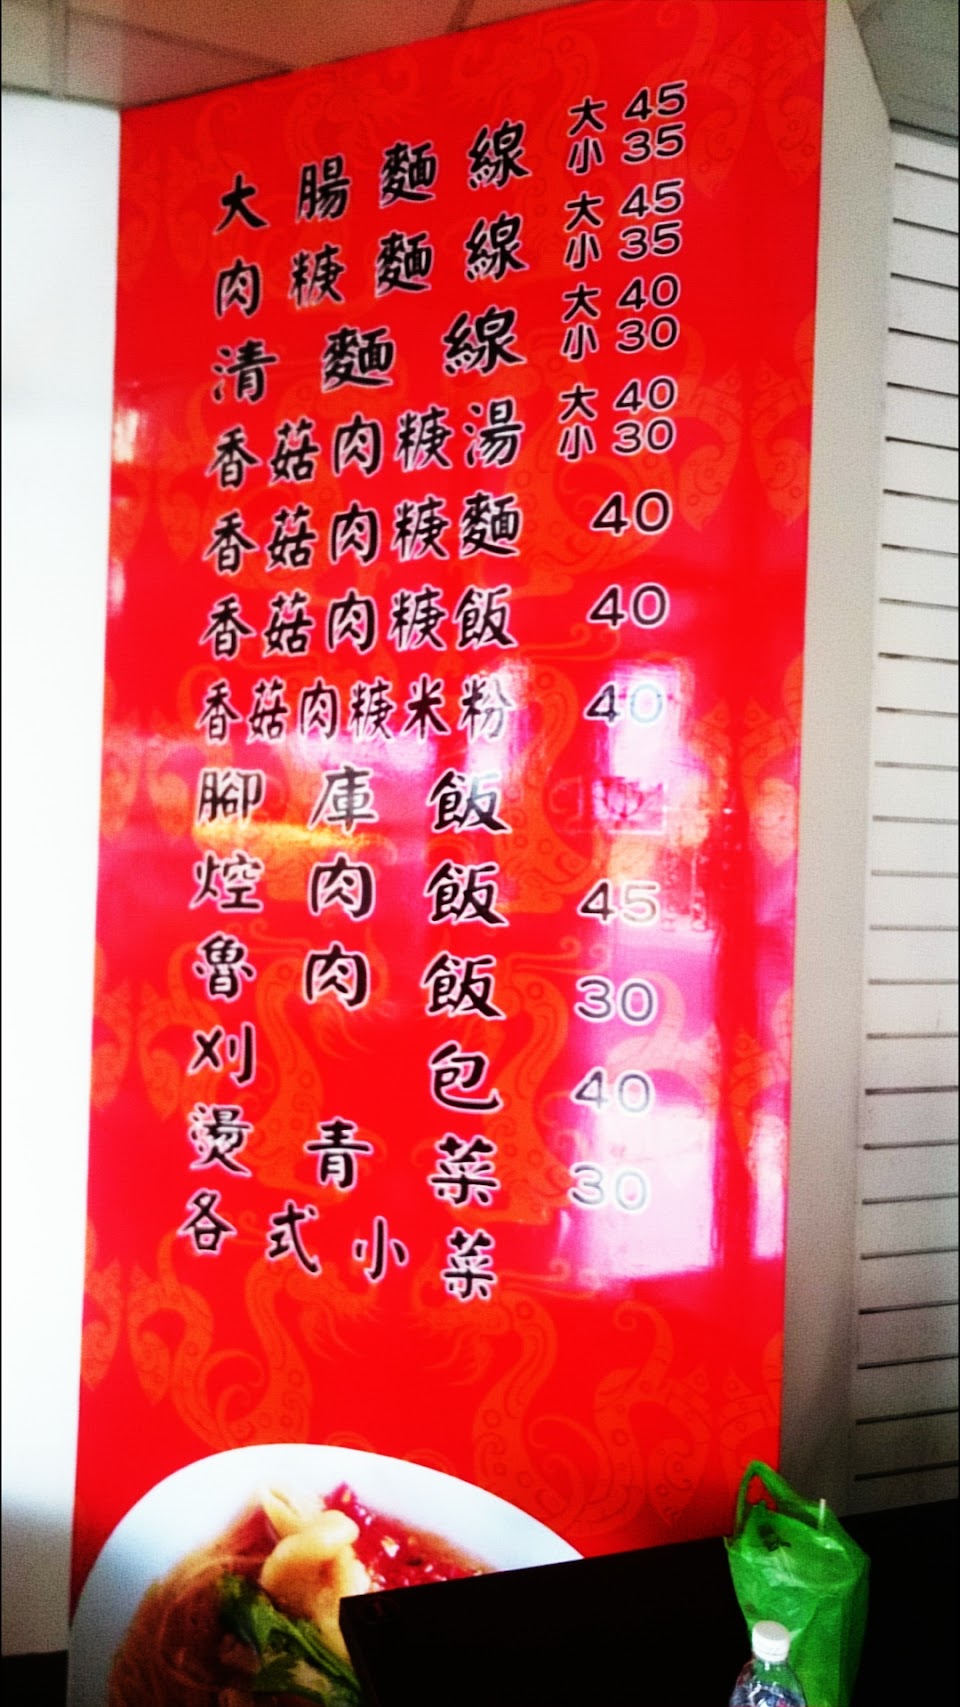 大腸麵線 大 45 小 35
肉糠麵線 大 45 小 35
清麵線 大 40 小 30
香菇肉糠湯 大 40 小 30
香菇肉糠麵 40
香菇肉糠飯 40
香菇肉糠米粉 40
腳庫飯
焢肉飯 45
魯肉飯 30
刈包 40
燙青菜 30
各式小菜